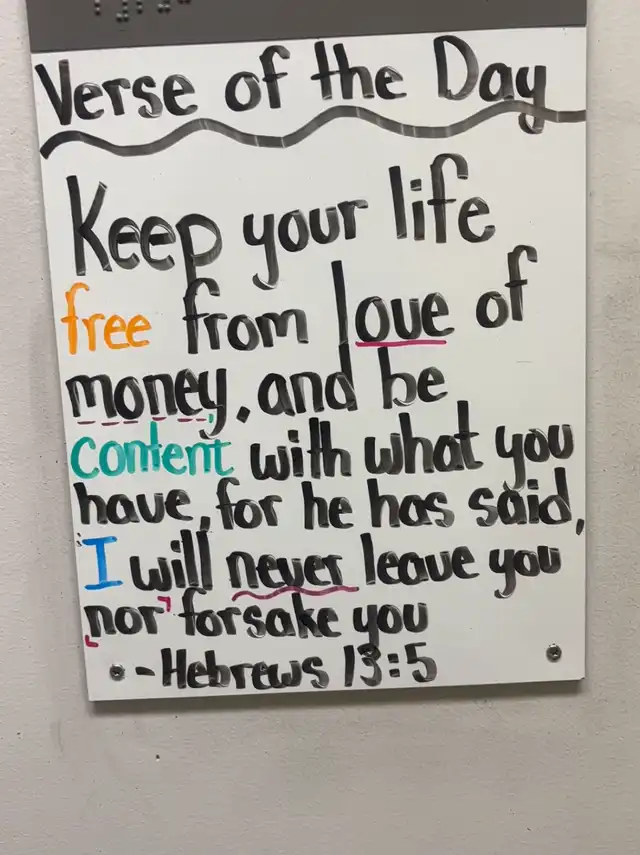 Verse of the Day
Keep your life
free from love of
money, and be
content with what you
have, for he has said,
"I will never leave you
nor forsake you
-Hebrews 13:5